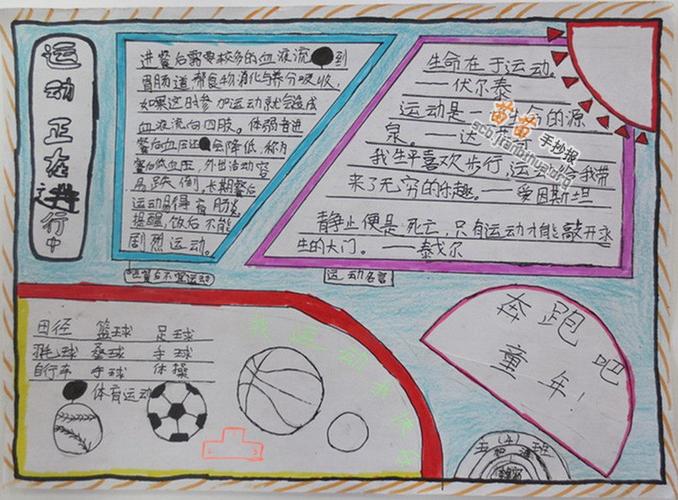 运动正在进行中
进餐后需要较多的血液流到
胃肠道,帮食物消化与养分吸收,
如果这时参加运动就会造成
血液流向四肢。体弱者进
餐后血压还会降低,称为
餐后低血压,外出活动容
易跌倒,长期餐后
运动易得胃肠炎
提醒,饭后不能
剧烈运动。
生命在于运动。
——伏尔泰
运动是一
生命的源
泉。——达
我生平喜欢步行,运
给我带
来了无穷的乐趣。——爱因斯坦
静止便是死亡,只有运动才能敲开永
生的大门。——泰戈尔
苗苗手抄报
运动名言
田径 篮球 足球
羽毛球 垒球 手球
自行车 手球 体操
体育运动
奔跑吧
童年!
五(4)班